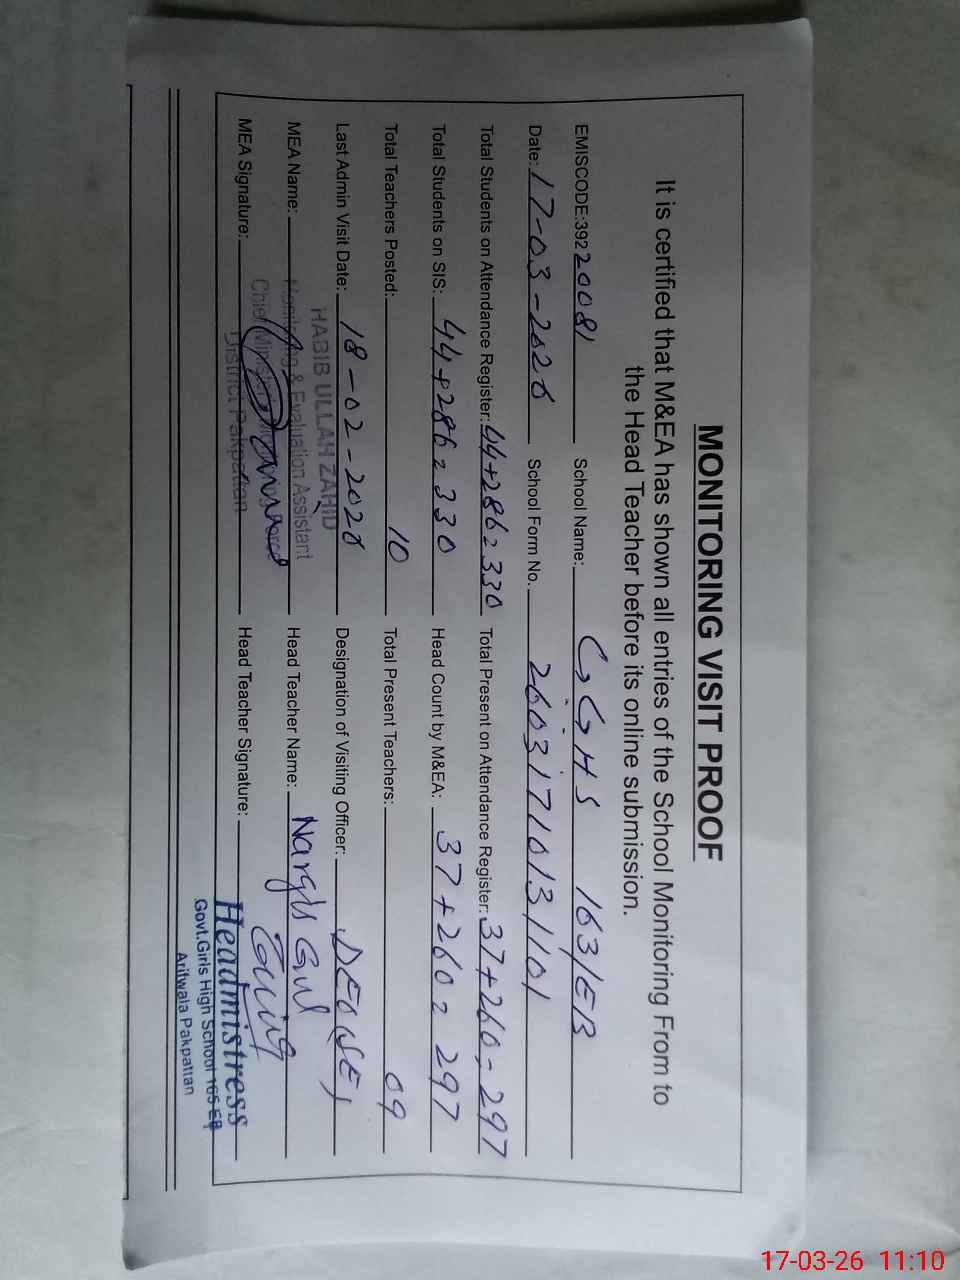 MONITORING VISIT PROOF
It is certified that M&EA has shown all entries of the School Monitoring From to
the Head Teacher before its online submission.
EMISCODE:39220081 School Name: GGHS 163/EB
Date: 17-03-2026 School Form No. 26031710131101
Total Students on Attendance Register: 44+286=330 Total Present on Attendance Register: 37+260-297
Total Students on SIS: 44+286=330 Head Count by M&EA: 37+260=297
Total Teachers Posted: 10 Total Present Teachers: 09
Last Admin Visit Date: 18-02-2026 Designation of Visiting Officer: DEO(SE)
HABIB ULLAH ZAHID
MEA Name: Monitoring & Evaluation Assistant Head Teacher Name: Nargis Gul
Chief Minister
MEA Signature: District Pakpattan Head Teacher Signature:
Headmistress
Govt.Girls High School 165-EB
Arifwala Pakpattan
17-03-26 11:10